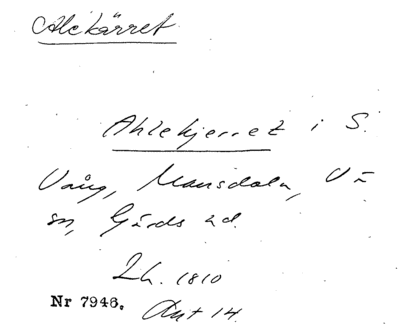 Alekärret
Ahlekjerret i S.
Vång, Mansdala, Vä
sn, Gärds hd.
Lh. 1810
Nr 7946. Akt 14